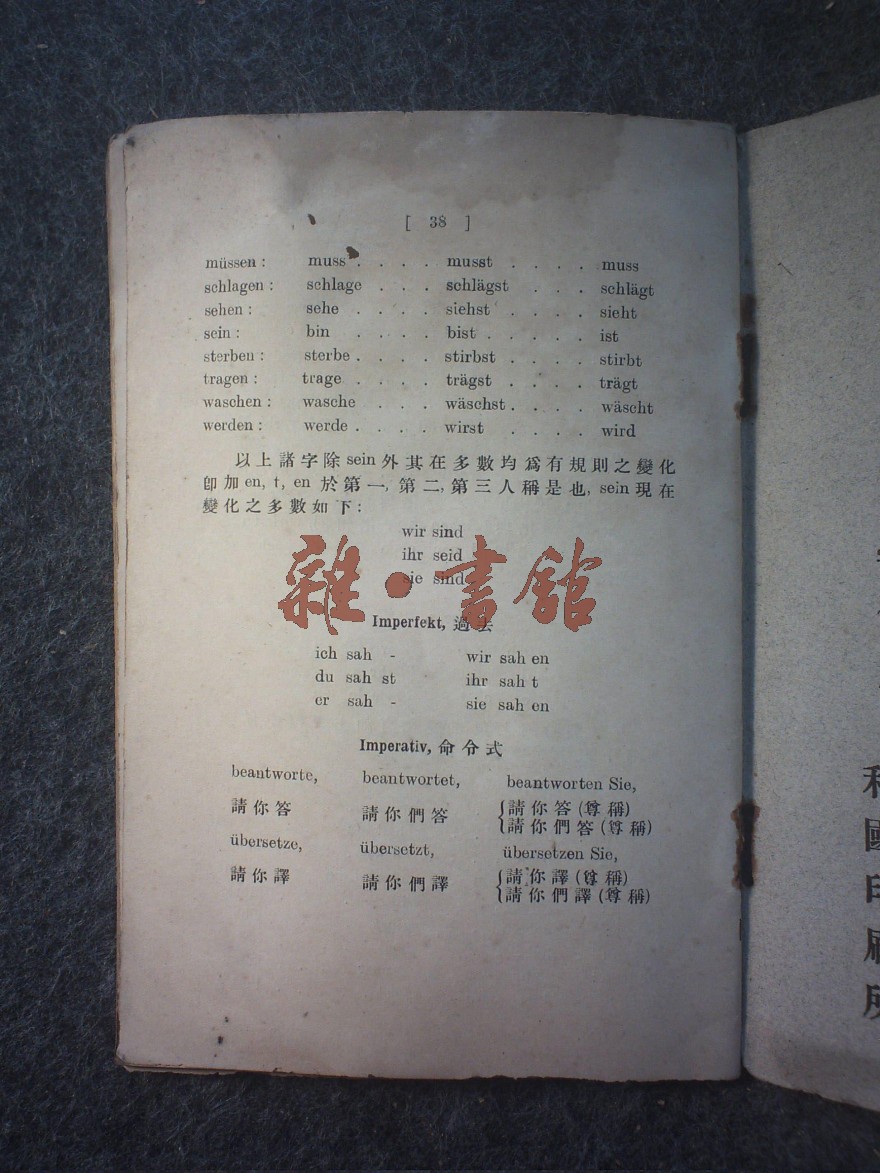 [ 38 ]
müssen : muss . . . . musst . . . . muss
schlagen : schlage . . . schlägst . . . schlägt
sehen : sehe . . . . siehst . . . . sieht
sein : bin . . . . bist . . . . . ist
sterben : sterbe . . . . stirbst . . . . stirbt
tragen : trage . . . . trägst . . . . trägt
waschen : wasche . . . wäschst . . . . wäscht
werden : werde . . . . wirst . . . . wird
以上諸字除 sein 外其在多數均爲有規則之變化
卽加 en, t, en 於第一, 第二, 第三人稱是也, sein 現在
變化之多數如下:
wir sind
ihr seid
sie sind
雜·書館
Imperfekt, 過去
ich sah - wir sah en
du sah st ihr sah t
er sah - sie sah en
Imperativ, 命令式
beantworte, beantwortet, beantworten Sie,
請你答 請你們答 {請你答(尊稱)
請你們答(尊稱)
übersetze, übersetzt, übersetzen Sie,
請你譯 請你們譯 {請你譯(尊稱)
請你們譯(尊稱)
國
印